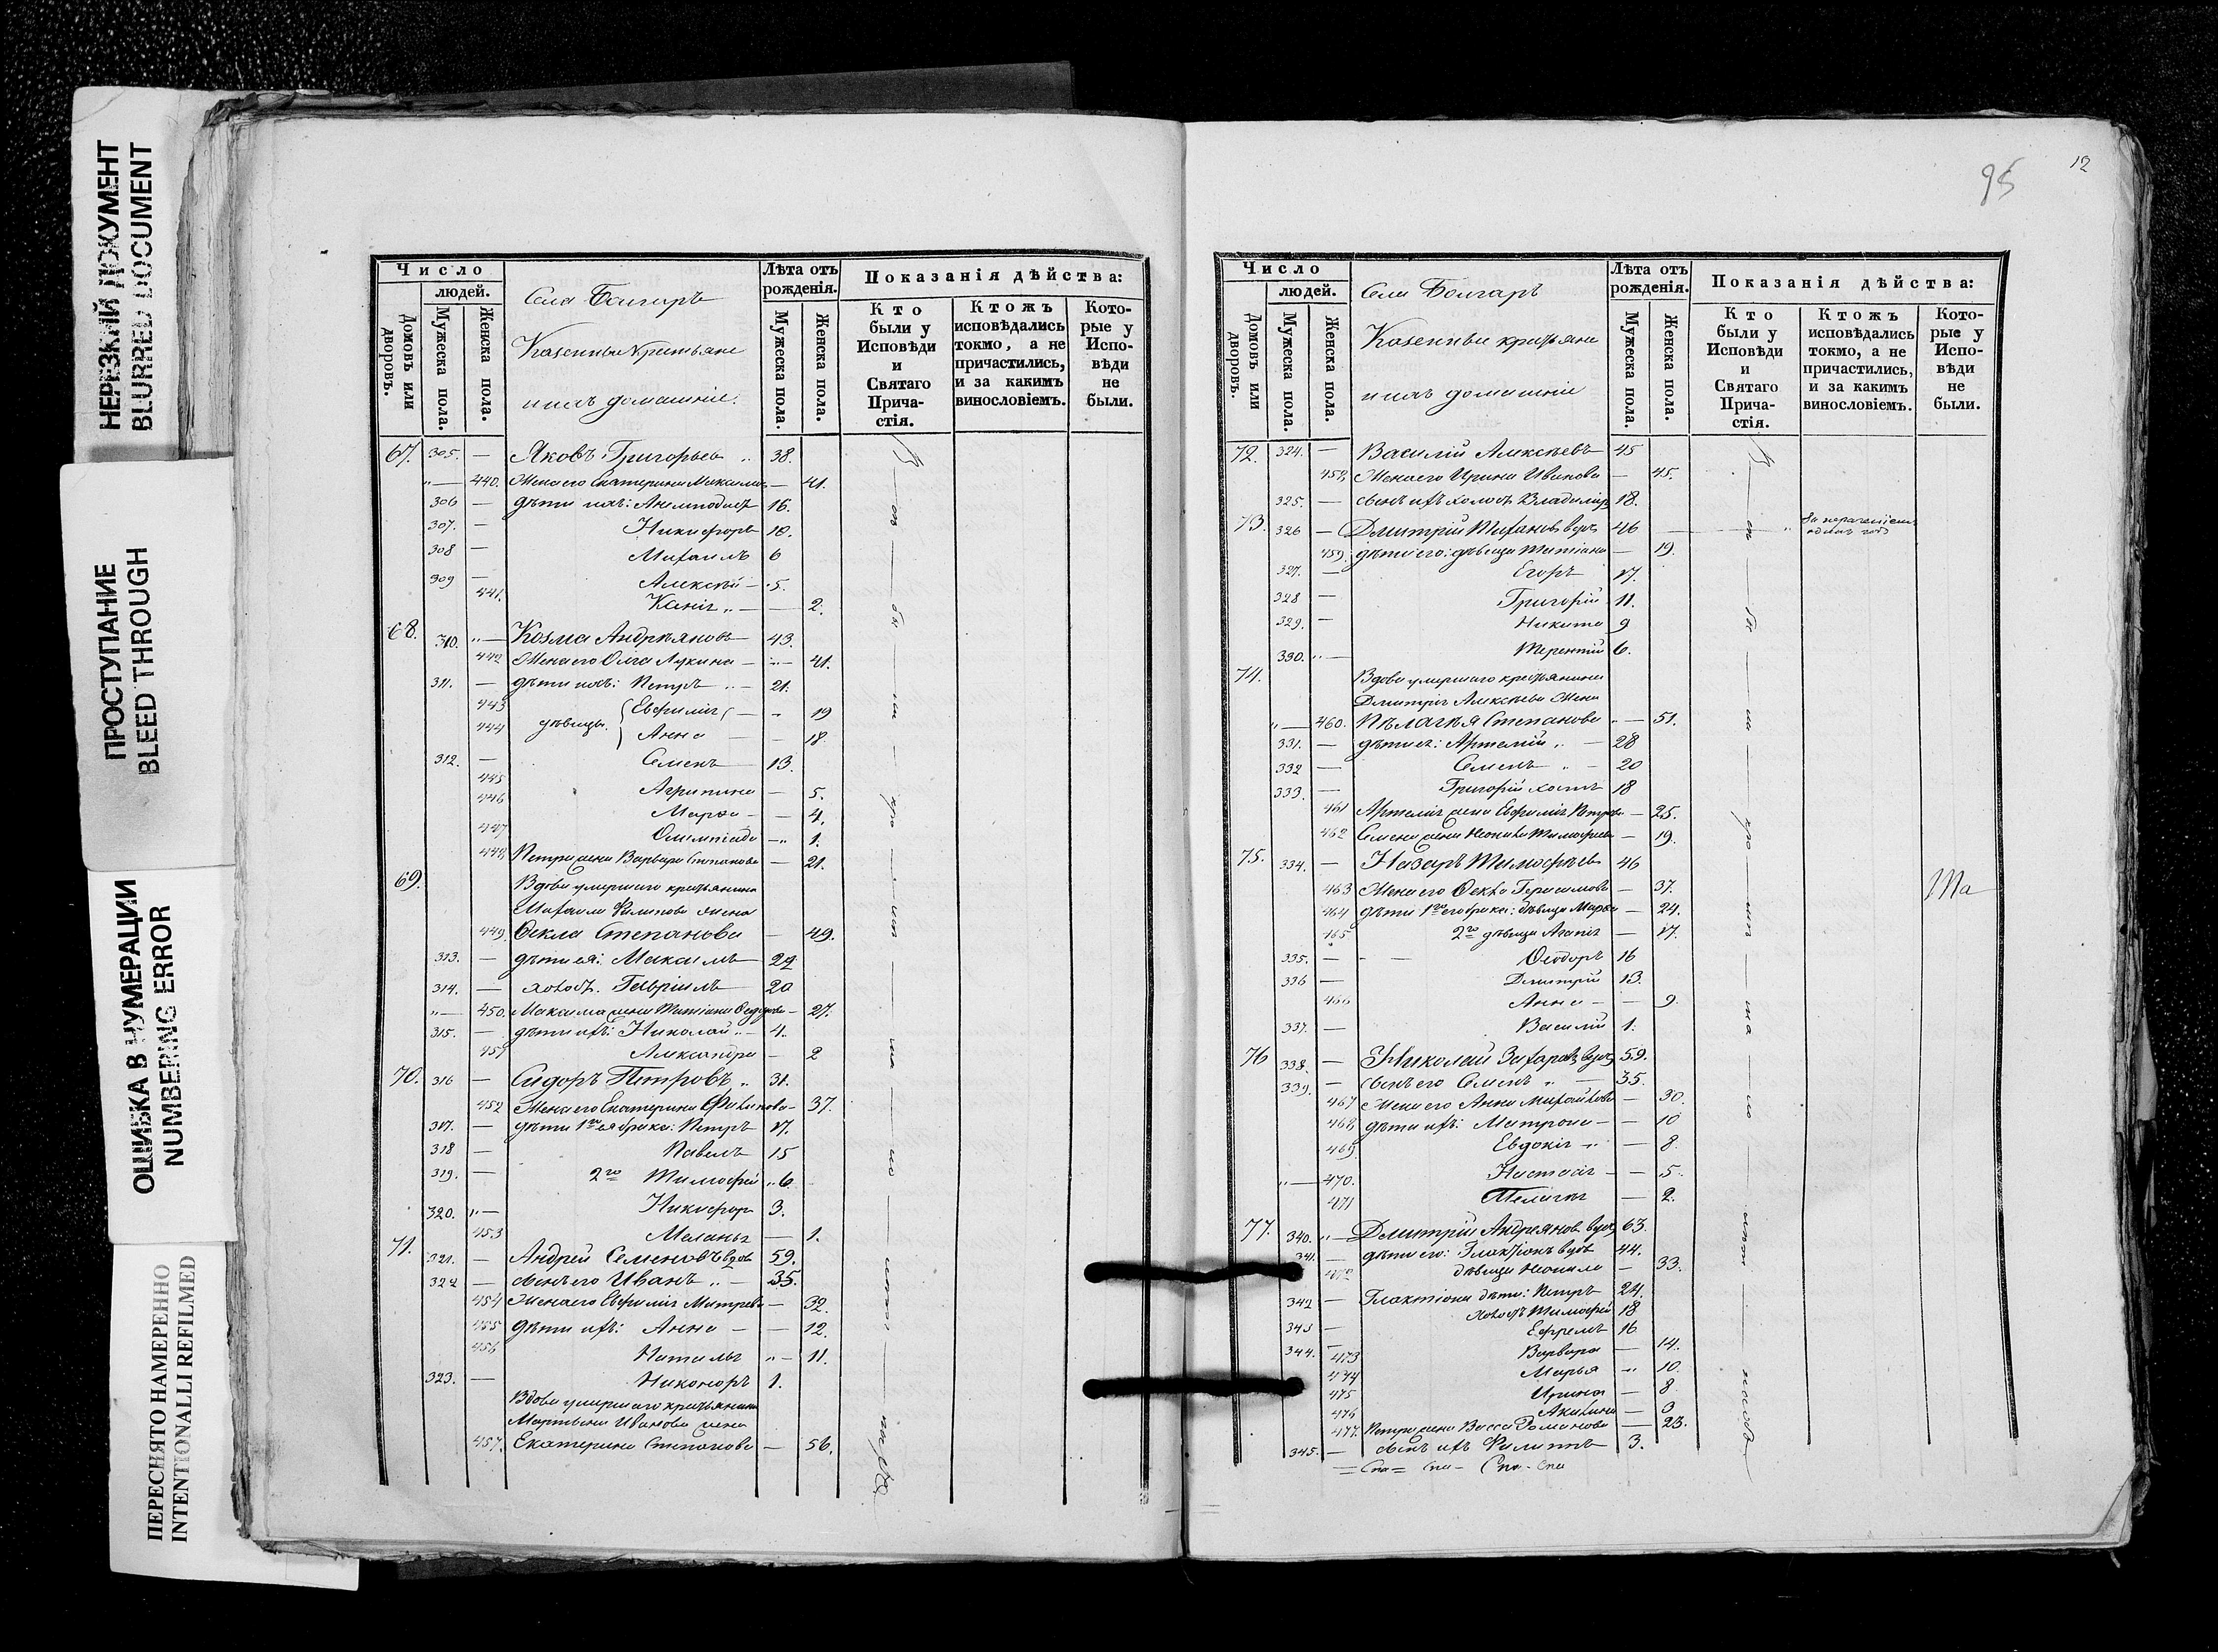 НЕРЕЗКИЙ ДОКУМЕНТ
BLURRED DOCUMENT
ПРОСТУПАНИЕ
BLEED THROUGH
ОШИБКА В НУМЕРАЦИИ
NUMBERING ERROR
ПЕРЕСНЯТО НАМЕРЕННО
INTENTIONALLI REFILMED
Число
людей.
Домовъ или дворовъ.
Мужеска пола.
Женска пола.
Села Болгаръ
Казенныи Крестьяне
и ихъ домашніе.
Лѣта отъ рожденія.
Мужеска пола.
Женска пола.
Показанія дѣйства:
Кто были у Исповѣди и Святаго Причастія.
Ктожъ исповѣдались токмо, а не причастились, и за какимъ винословіемъ.
Которые у Исповѣди не были.
67. 305. — Яковъ Григорьевъ 38.
440. Жена его Екатерина Максимова — 41.
306 — дѣти ихъ: Анемподистъ 16.
307. — Никифоръ 10.
308 — Михаилъ 6
309 — Алексѣй — 5.
441. — 2.
68. 310. — Козма Андреяновъ 43.
442 Жена его Олга Лукина — 41.
311. — дѣти ихъ: Петръ 21.
443 Евфимія — 19
444 дѣвицы. Анна — 18.
312. — Семенъ 13.
445 Агрипина — 5.
446 Марѳа — 4.
447 Олимпіада — 1.
448 Петра жена Варвара Степанова — 21.
69. Вдова умершаго крестьянина
Михаила Филипова жена
449. Ѳекла Степанова — 49.
313. — дѣти ея: Максимъ 29
314. — холостъ. Гавріилъ 20
450. Максима жена Татіана Ѳедорова — 27.
315. — дѣти ихъ: Николай 4.
451 Александра — 2
70. 316 — Сидоръ Петровъ 31.
452 Жена его Екатерина Филипова — 37.
317. — дѣти 1го ея брака: Петръ 17.
318 — Павелъ 15
319. — 2го Тимофей 6
320. — Никифоръ 3.
453 Меланья — 1.
71. 321. — Андрей Семеновъ вдовъ 59.
322 — сынъ его Иванъ 35.
454 Жена его Евфимія — 32.
455 дѣти ихъ: Анна — 12.
456 Наталья — 11.
323. — Никоноръ 1.
Вдова умершаго крестьянина
Мартына Иванова жена
457. Екатерина Степанова — 56.
95
12
Число
людей.
Домовъ или дворовъ.
Мужеска пола.
Женска пола.
Села Болгаръ
Казенныи крестьяне
и ихъ домашніе
Лѣта отъ рожденія.
Мужеска пола.
Женска пола.
Показанія дѣйства:
Кто были у Исповѣди и Святаго Причастія.
Ктожъ исповѣдались токмо, а не причастились, и за какимъ винословіемъ.
Которые у Исповѣди не были.
72. 324. — Василій Алексѣевъ 45
458 Жена его Ирина Иванова — 45.
325. — сынъ ихъ холостъ Владиміръ 18.
73. 326 — Дмитрій вдовъ 46
459. дѣти его: дѣвица Татіана — 19.
327. — Егоръ 17.
328 — Григорій 11.
329. — Никита 9
330. — Терентій 6.
74. Вдова умершаго крестьянина
Дмитрія Алексѣева жена
460. Пелагѣя Степанова — 51.
331. — дѣти ея: Артемій — 28
332 — Семенъ — 20
333. — Григорій холостъ 18
461 Артемія жена Евфимія Петрова — 25.
462 Семена жена Неонила Тимофеева — 19.
75. 334. — Назаръ Тимофѣевъ 46
463 Жена его Ѳекла Герасимова — 37.
464 дѣти 1го его брака: дѣвица Марѳа — 24.
465 2го дѣвица Агапія — 17.
335. — Ѳеодоръ 16
336 — Дмитрій 13.
466 Анна — 9.
337. — Василій 1.
76 338. — Николай Захаровъ вдовъ 59.
339. — сынъ его Семенъ — 35.
467 Жена его Анна Михайлова — 30.
468 дѣти ихъ: Матрона — 10
469. Евдокія — 8.
470. Настасія — 5.
471 Пелагея — 2.
77. 340. — Дмитрій Андреяновъ вдовъ 63.
341. — дѣти его: Галактіонъ вдовъ 44.
472 дѣвица Неонила — 33.
342 — Галактіона дѣти: Петръ 24.
холостъ Тимофей 18
343 — Ефремъ 16
344. 473 Варвара — 14.
474 Марья 10.
475 Ирина — 8
476 Акилина — 3
477. Петра жена Васса Романова — 23.
345. — сынъ ихъ Филиппъ 3.